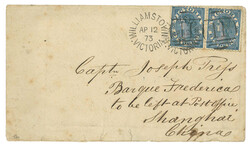 WILLIAMSTOWN
AP 12
73
VICTORIA
Captn Joseph
Barque Frederica
to be left at Post Office
Shanghai
China